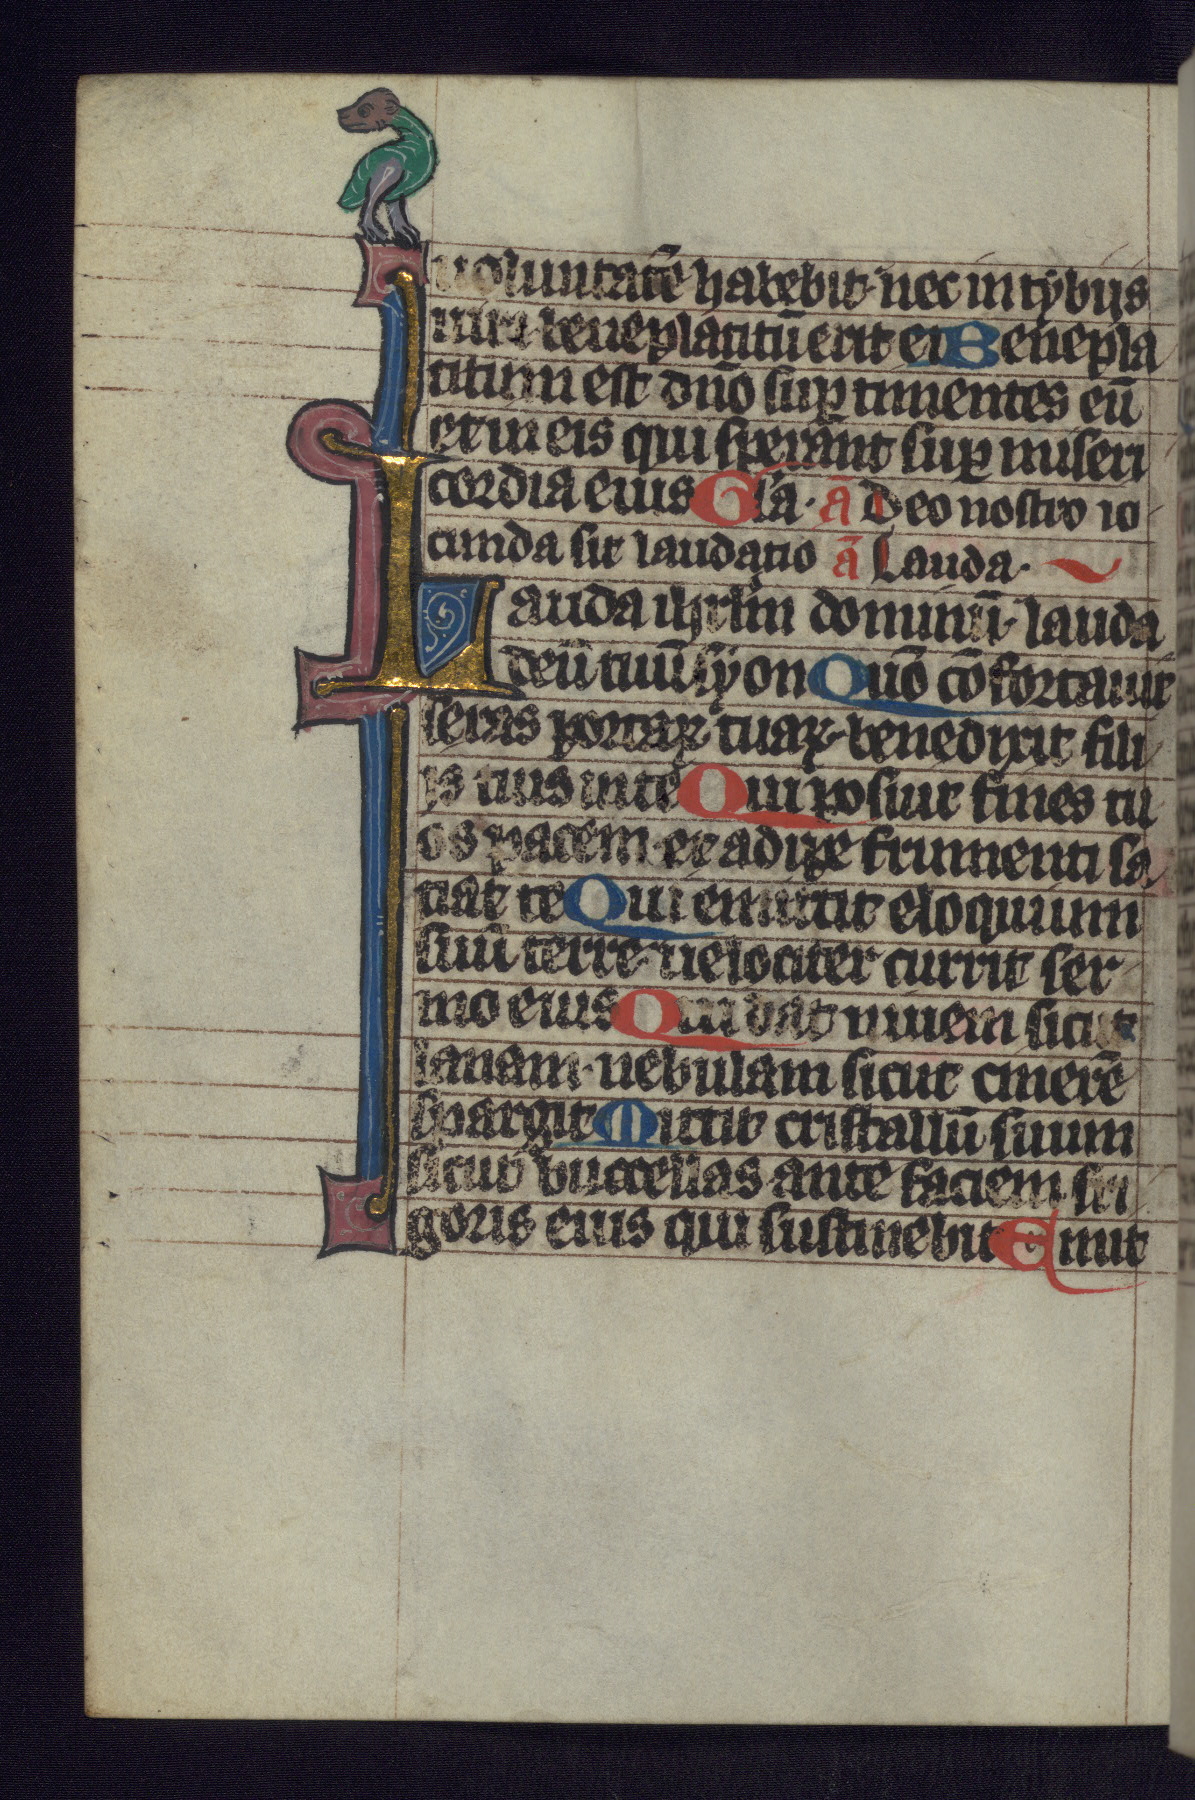 uoluntatē habebit· nec in tybijs
uiri beneplacitū erit ei Benepla
citum est dn̄o suꝑ timentes eū
et in eis qui sperant suꝑ miseri
cordia eius Gl̄a· ā Deo nostro io
cunda sit laudatio ā Lauda·
Lauda ihrlm̄ dominū· lauda
deū tuū syon Quō cōfortauit
seras portaꝝ tuaꝝ· benedixit fili
is tuis in te Qui posuit fines tu
os pacem· et adipe frumenti sa
tiat te Qui emittit eloquium
suū terre· uelociter currit ser
mo eius Qui dat niuem sicut
lanam· nebulam sicut cinerē
spargit Mittit cristallū suum
sicut buccellas· ante faciem fri
goris eius qui sustinebit Emit